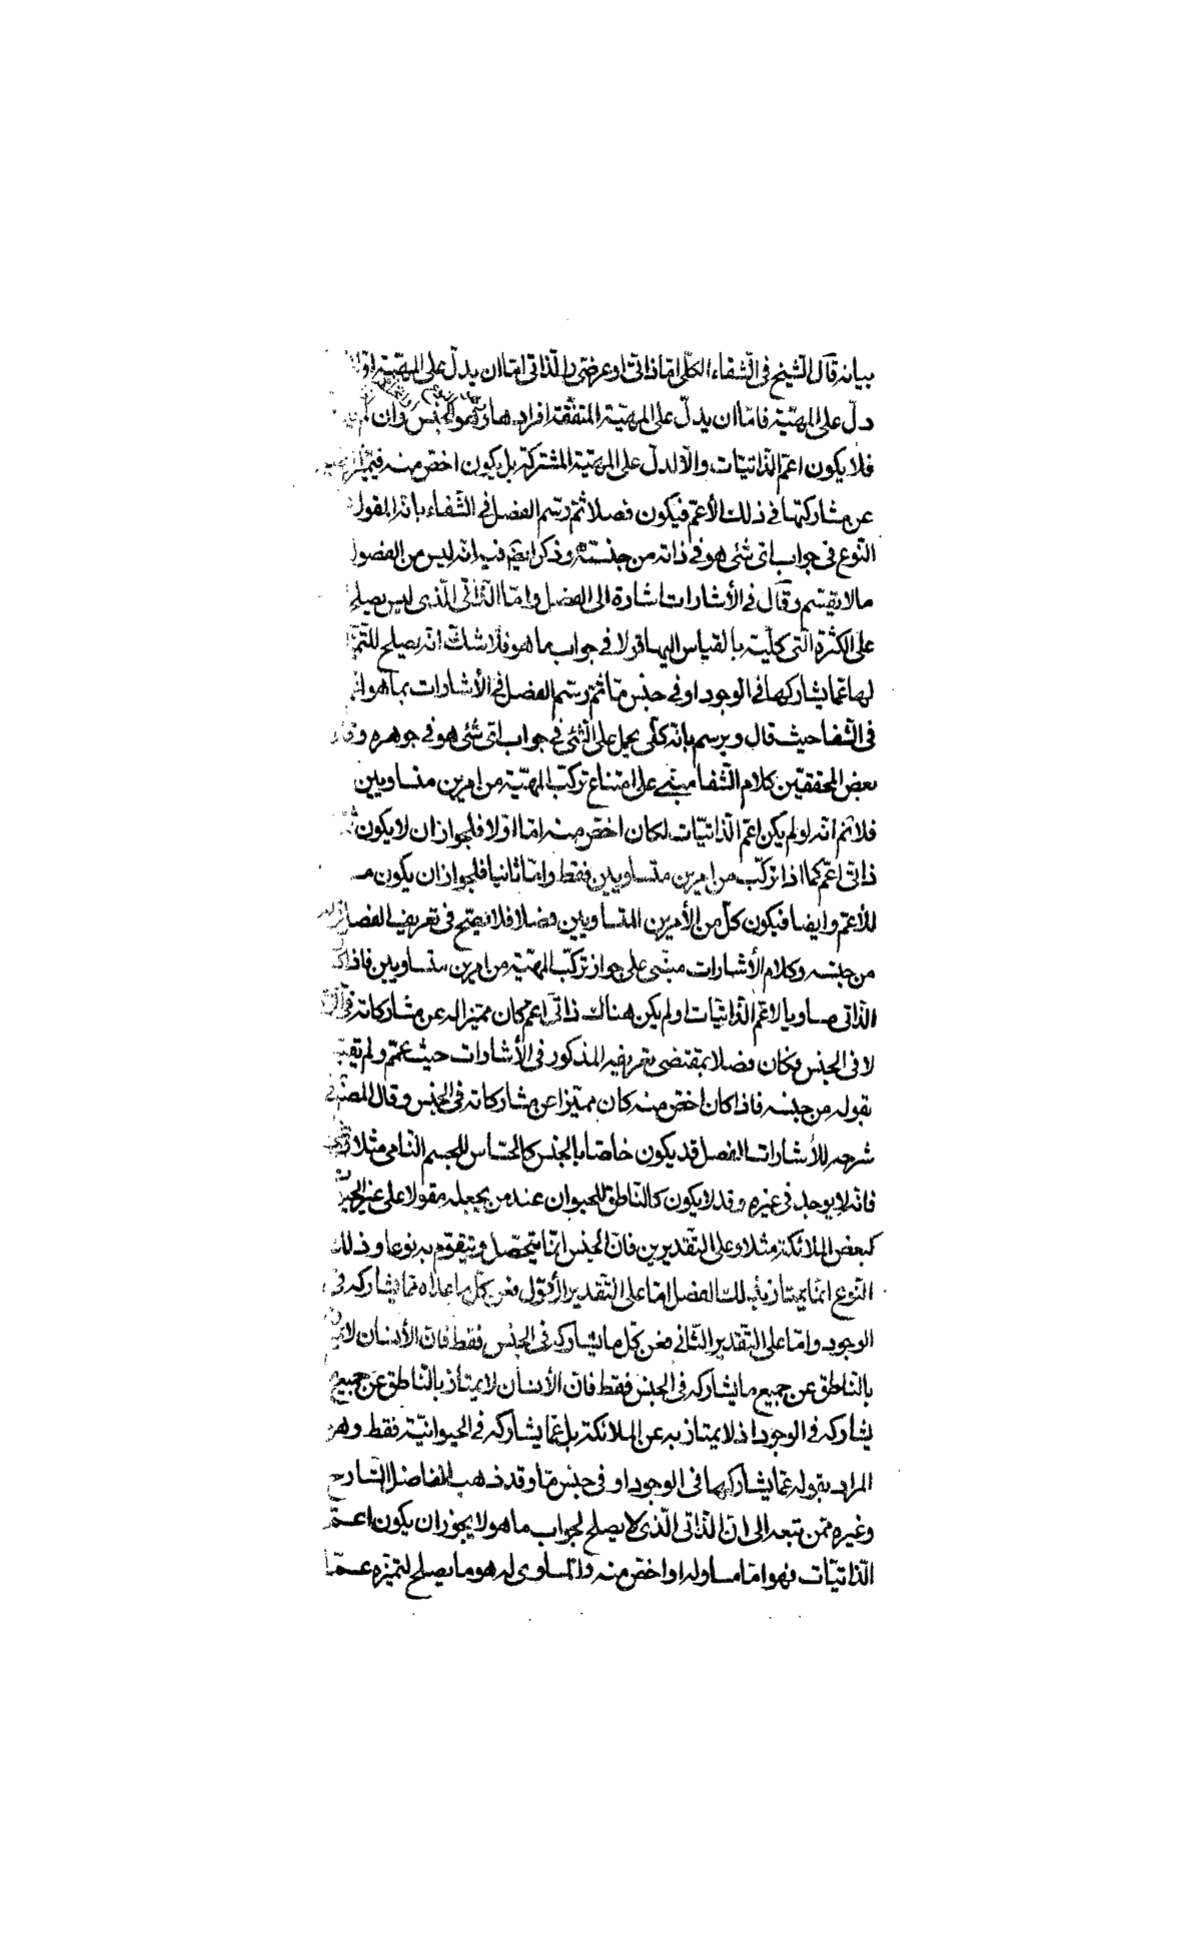 بيانه قال الشيخ فى الشفاء الكلى اما ذاتى او عرضى والذاتى اما ان يدل على المهية اولا
دل على المهية فاما ان يدل على المهية المتفقة افرادها الجنس وان لم
فلا يكون اعم الذاتيات والا لدل على المهية المشتركة بل يكون اخص منه
عن مشاركتها فى ذلك الأعم فيكون فصلا ثم رسم الفصل فى الشفاء بانه المقول
النوع فى جواب اى شئ هو فى ذاته من جنسه وذكر ايضم فيه انه ليس من الفصول
مالا يقسم وقال فى الأشارات اشارة الى الفصل واما الذاتى الذى ليس يصلح
على الكثرة التى كليته بالقياس اليها قولا فى جواب ما هو فلا شك انه يصلح
لها عما يشاركها فى الوجود او فى جنس ما ثم رسم الفصل فى الأشارات بما هو
فى الشفا حيث قال ويرسم بانه كلى يحمل على الشئ فى جواب اى شئ هو فى جوهره
بعض المحققين كلام الشفا مبنى على امتناع تركب المهية من امرين متساويين
فلا نم انه لو لم يكن اعم الذاتيات لكان اخص منه اما اولا فلجواز ان لا يكون
ذاتى اعم كما اذا تركب من امرين متساويين فقط واما ثانيا فلجواز ان يكون مـ
للأعم وايضا فيكون كل من الأمرين المتساويين فصلا فلا يصح فى تعريف الفصل
من جنسه وكلام الأشارات مبنى على جواز تركب المهية من امرين متساويين فاذا
الذاتى مساويا لاعم الذاتيات او لم يكن هناك ذاتى اعم كان مميزا له عن مشاركاته فى
لا فى الجنس فكان فصلا بمقتضى تعريفه المذكور فى الأشارات حيث عمم ولم
بقوله من جنسه فاذا كان اخص منه كان مميزا عن مشاركاته فى الجنس وقال المصنف فى
شرحه للأشارات الفصل قد يكون خاصا بالجنس كالحساس للجسم النامى مثلا
فانه لا يوجد فى غيره وقد لا يكون كالناطق للحيوان عند من يجعله مقولا على غير الحيوان
كبعض الملائكة مثلا وعلى التقديرين فان الجنس انما يتحصل ويتقوم به نوعا وذلك
النوع انما يمتاز بذلك الفصل اما على التقدير الأول فعن كل ما عداه مما يشاركه فى
الوجود واما على التقدير الثانى فعن كل ما يشاركه فى الجنس فقط فان الأنسان
بالناطق عن جميع ما يشاركه فى الجنس فقط فان الأنسان لا يمتاز بالناطق عن جميع
يشاركه فى الوجود اذ لا يمتاز به عن الملائكة بل عما يشاركه فى الحيوانية فقط وهو
المراد بقوله عما يشاركها فى الوجود او فى جنس ما وقد ذهب الفاضل الشارح
وغيره ممن تبعه الى ان الذاتى الذى لا يصلح لجواب ما هو لا يجوز ان يكون اعم
الذاتيات فهو اما مساو له او اخص منه والمساوى له هو ما يصلح لتميزه عما